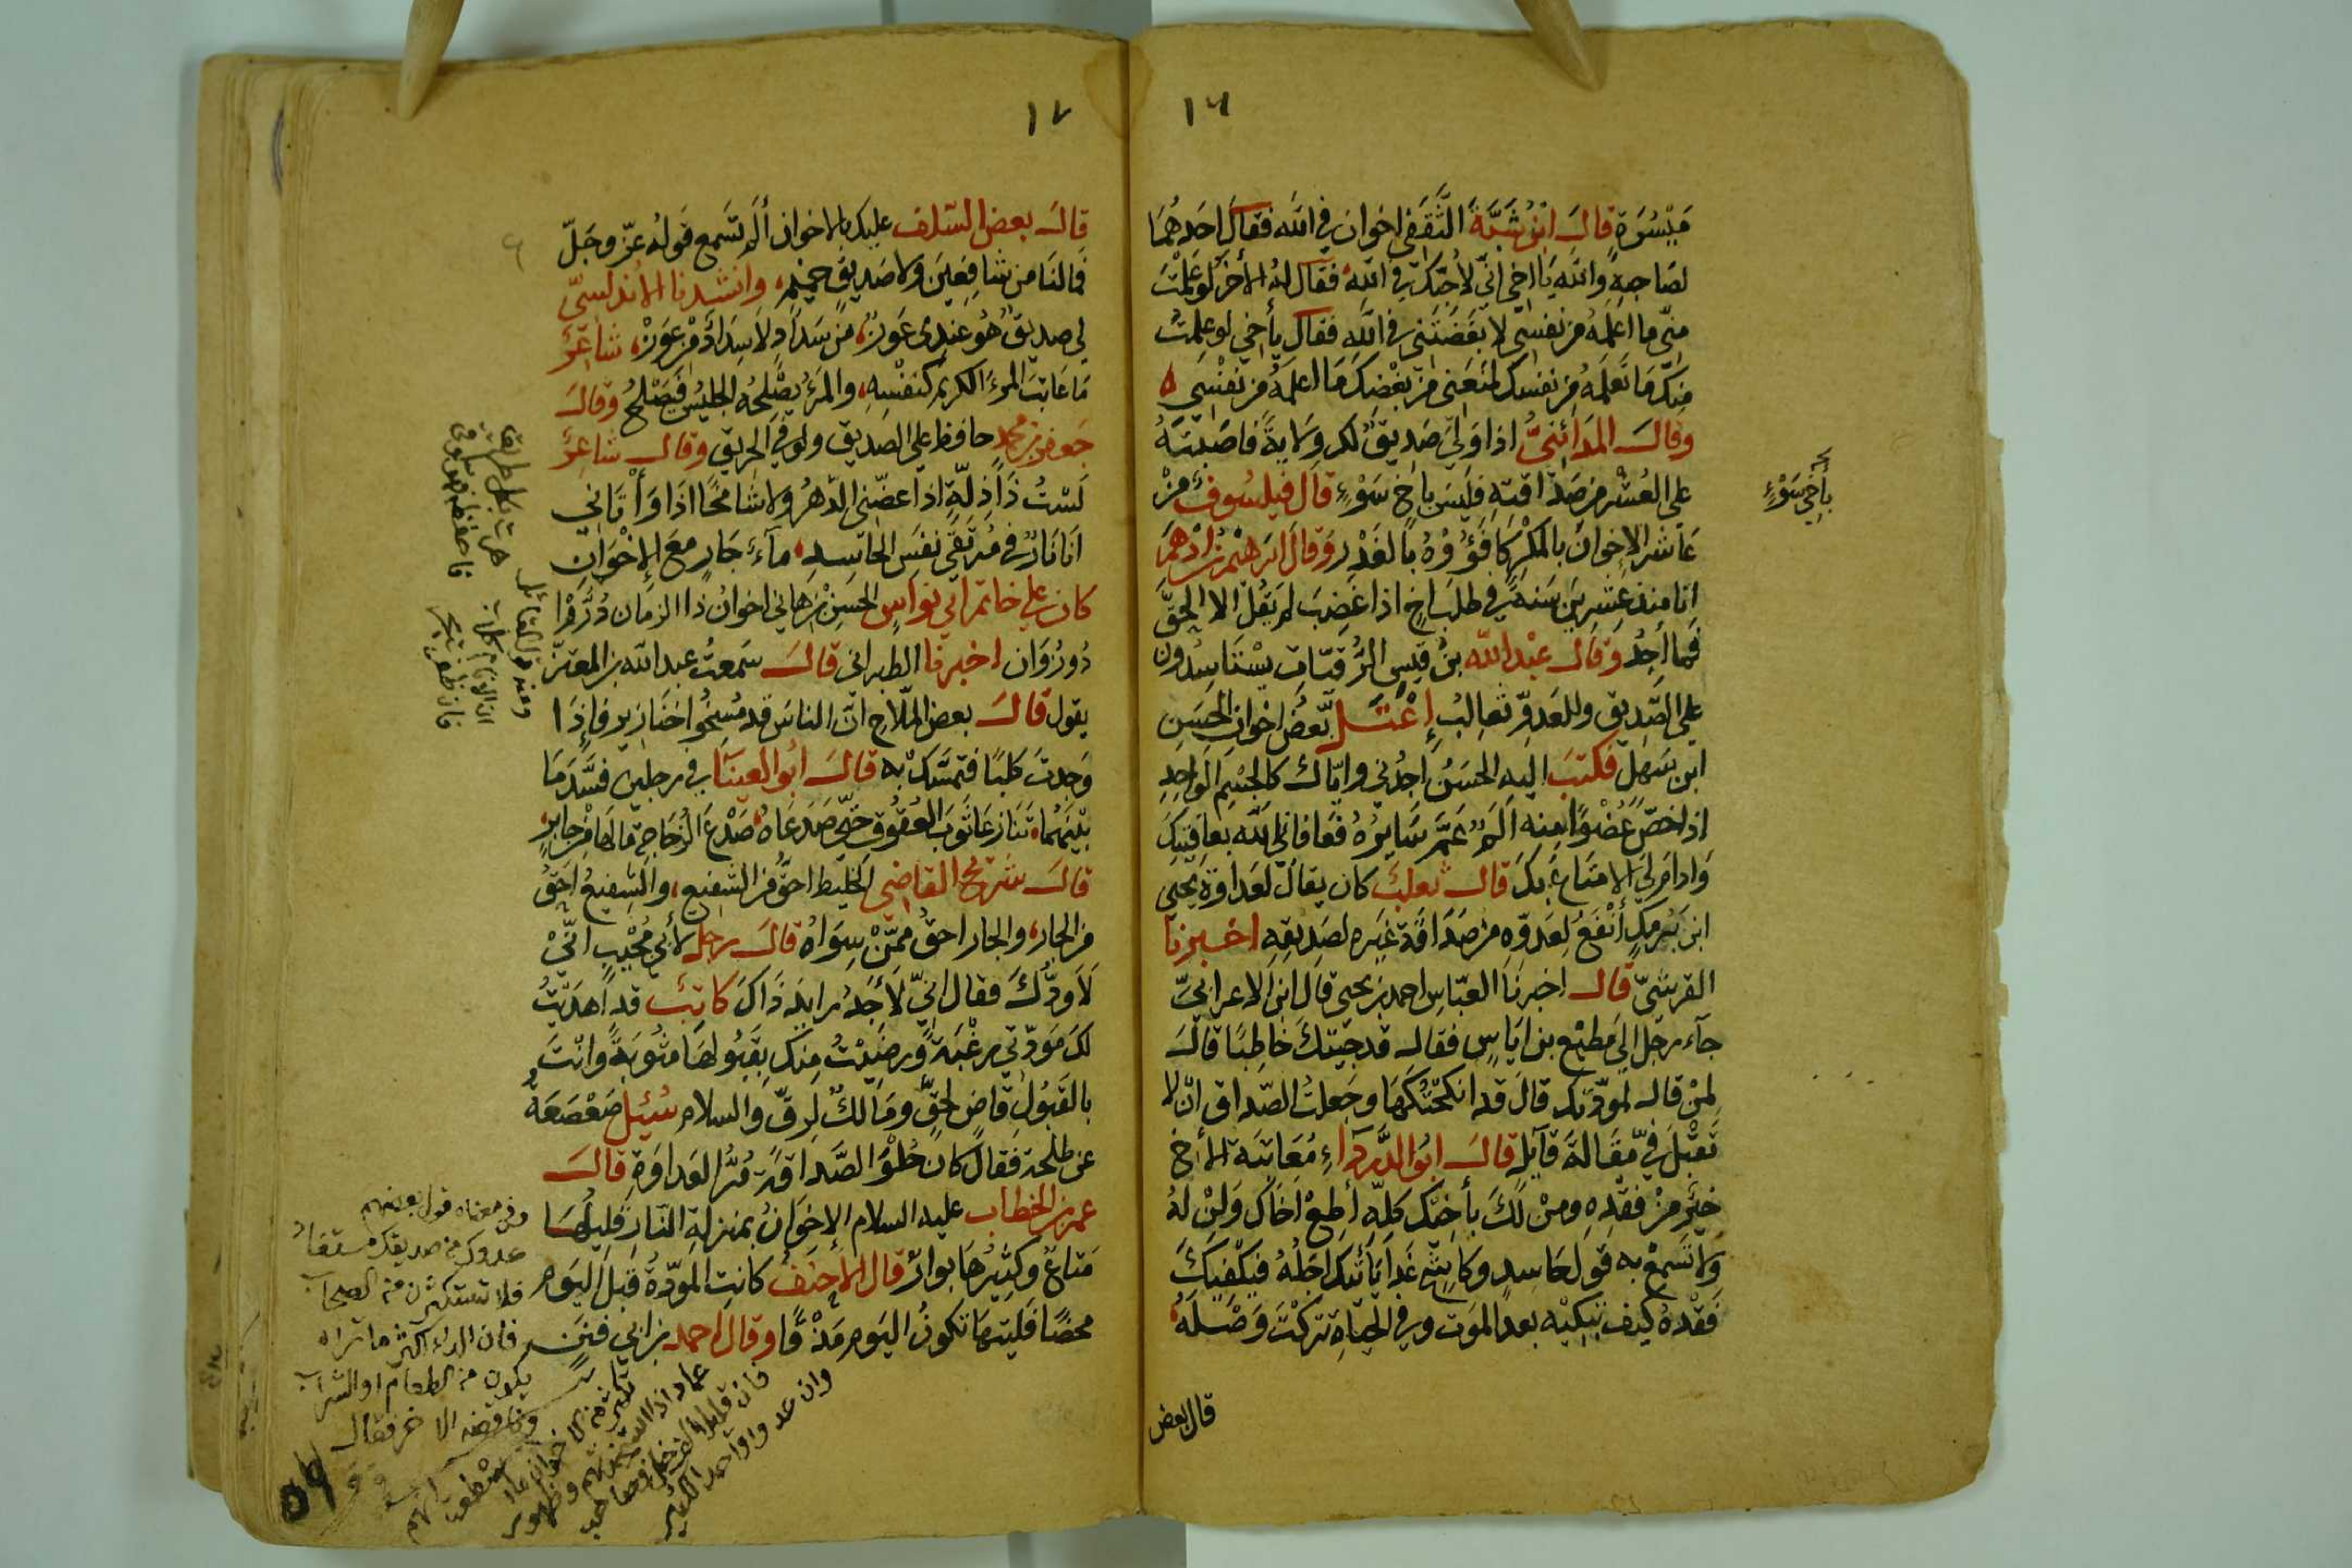 ١٦
مَيْسُرَةٍ قالَ ابْنُ شَبَّةَ الثَّقَفِي اخوان في الله فقال احَدهُمَا
لصَاحِبِهِ وَالله يَا اخي انّي لأحِبُّكَ في الله فقال لهُ الأخرُ لو عَلِمْتَ
منّي ما اعلمُهُ من نفسِي لأبغَضْتَني في الله فقالَ يأخي لو علِمتُ
مِنكَ مَا تعلمُهُ من نفسِكَ لمنَعَني من بغْضِكَ مَا اعلمُهُ من نَفْسِي ه
وقالَ المَدَائِنيُّ اذا وَلِيَ صَدِيقٌ لكَ وِلَايةً فاصَبْتَهُ
على العُشْرِ من صَدَاقتِهِ فليْسَ باخِ سَوْءٍ قالَ فيلسُوفٌ مَنْ
عَاشَرَ الإخوانَ بالمَكْرِ كافَؤُوْهُ بالغَدْرِ وقالَ ابرَهيْم بن ادْهَمَ
انا منذ عِشْرِينَ سَنةً في طلَب اخٍ اذا غضِبَ لم يَقُل الا الحقَّ
فما اجِدُ وقالَ عبْد الله بنُ قيسِ الرُّقيّات يسْتَاسِدُونَ
على الصّديق وللعَدوّ ثعالبُ إعْتَلَّ بَعضُ اخوانِ الحسَنِ
ابن سَهلٍ فكتبَ اليه الحسَنُ اجِدُني وايّاك كالجسْمِ الواحِدِ
اذا خصَّ عُضْوًا منه المٌ عَمَّ سَائِرَهُ فعَافاني الله بعافيَتِكَ
وادامَ لي الامتاعَ بكَ قالَ ثعلبٌ كان يقال لعَداوَةُ يحيى
ابن بَرمَكٍ أنْفَعُ لعَدوّهِ من صَدَاقةِ غيرِه لصَديقِهِ اخبرنا
القرشيّ قال اخبرَنا العبّاس احمد بن يحيى قال ابن الاعرابيّ
جآء رجل الى مطيْع بن اياسٍ فقال قد جيتكَ خاطبًا قالَ
لِمَنْ قال لمودّتكَ قالَ قد انكحْتُكَهَا وجعلتُ الصّداقَ انْ لا
تَقْبَلَ فيَّ مَقَالةَ قآئلٍ قالَ ابُو الدَّرْدَاءِ مُعَاتبَة الأخ
خيْرٌ منْ فقدِهِ ومنْ لكَ بأخيْكَ كلِّهِ أطِعْ اخاكَ ولِنْ لهُ
ولا تسمعْ به قولَ حَاسِدٍ وكاشِحٍ غدًا يَأتيكَ اجَلُهُ فيكفيكَ
فَقْدهُ كيفَ تبْكيْهِ بعد الموَت وفي الحيَاةِ تركْتَ وَصْلَهُ
بأخي سَوْءٍ
قال بعض
١٧
قالَ بعض السّلف عليكَ بالاخوان ألم تَسمع قولُه عزّ وجَلّ
فما لنَا من شافِعِينَ ولا صَديقٍ حميْمٍ، وانشدنا الأندلسِيّ
لي صديقٌ هُو عندي عَوَزٌ، من سَدَادٍ لا سِدَادٌ من عَوَزْ، شاعِرٌ
مَا عاتبَ المرءَ الكريمَ كنفْسِهِ، والمَرْءُ يُصْلِحُهُ الجليْسُ فَيصْلحُ وقالَ
جعفر بن محمد حافظ على الصّديق ولو في الحريق وقالَ شاعرٌ
لَسْتُ ذَا ذِلّةٍ اذا عضّني الدّهرُ ولا شامخًا اذَا وَأتَاني
انَا نَارٌ في مُرتقَى نفَس الحَاسدِ، مآءٌ جَارٍ معَ الإخْوَانِ
كان على خاتم ابي نواسٍ الحسَن بن هاني اخوانُ ذا الزمان
اخبرنا الطبراني قالَ سَمعتُ عبد الله بن المعتزّ
يقول قالَ بعض الملّاح انّ الناسَ قد مُسِخُوا خَنازيرَ فإذَا
وَجدتَ كلبًا فتمسّكْ به قالَ ابُو العينَا في رجلين فسَدَ مَا
بيْنَهُمَا، تَنَازعَا ثوبَ العُقُوقِ حتّى صَدَعَاهُ صَدْعَ الزجَاجةِ مَا لَهَا مِنْ جَابرٍ
قالَ شريحٌ القاضي الخليط احَقُّ من الشفيع، والشفيعُ احَقُّ
من الجار، والجار احقُّ ممّنْ سِوَاهُ قالَ رجل لأبي انّيْ
لَأوَدُّكَ فقالَ انّي لأجَدُ رَائدَ ذَاكَ كاتبٌ قد اهدَيْتُ
لكَ مَودّتي رغْبَةً ورَضِيْتُ منكَ بقَبُولهَا مثُوبَةً وانتَ
بالقبُولِ قاضٍ لحَقٍّ ومَالكٌ لرِقٍّ والسلام سُئِلَ صَعْصَعَةُ
عن طلحة فقالَ كانَ حُلْوَ الصَّداقةِ مُرَّ العَداوَةِ قالَ
عمر بن الخطاب عليه السلام الإخوَانُ بمنزلةِ النّار قليلُهَا
مَتاعٌ وكثيْرُهَا بوارٌ قال الاحنَفُ كانتِ المودّةُ قبلَ اليَوم
محضًا فليتهَا تكونُ اليَوم مَذْقًا وقالَ احمد بن ابي فننٍ
وفي معناه قول بعضهم
عدوك من صديقك مستفاد
فلا تستكثرن من الصحاب
فان الداء اكثر ما تراه
يكون من الطعام او الشراب
وناقضه الاخر فقال